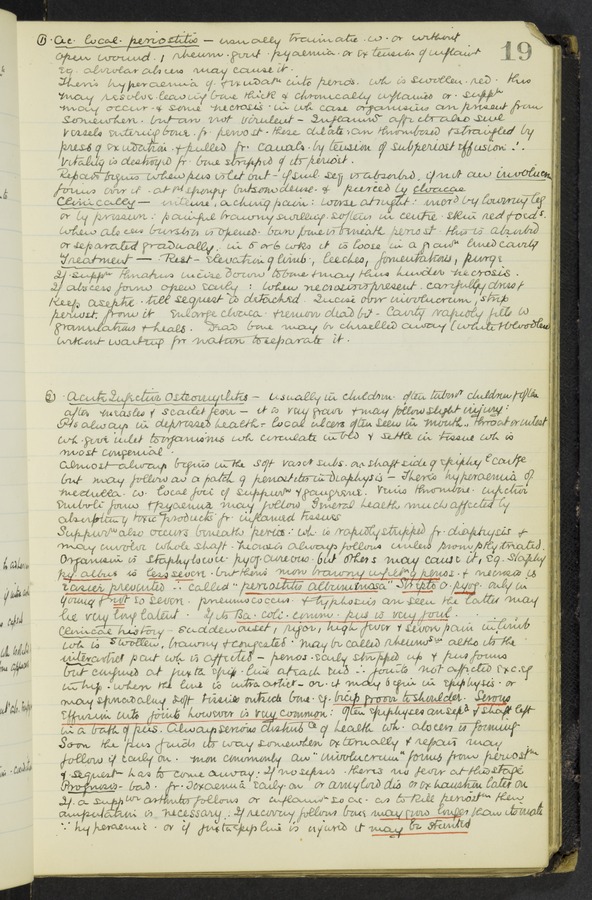 19
① Ac. local. periostitis — usually traumatic. w. or without
open wound. , rheum. gout. pyaemia. or extension of inflamt
eg. alveolar abscess may cause it.
There is hyperaemia & exudatn into perios. wh is swollen. red. this
may resolve leaving bone thick & chronically inflamed or. suppn
may occur. & some necrosis. in wh case organisms are present from
somewhere. but are not virulent — Inflamm affects also small
vessels entering bone. fr. periost. these dilate. are thrombosed & strangled by
press of exudation & pulled fr. canals. by tension of subperiost effusion ∴
vitality is destroyed fr bone stripped of its periost.
Repair begins when pus is let out — if small seq is absorbed, if not an involucrum
forms over it. at 1st spongy but soon dense. & pierced by cloacae
Clinically — intense, aching pain: worse at night: incrd by lowering leg
or by pressure: painful brawny swelling. softens in centre. skin red & oeds.
when abscess bursts or is opened. bare bone is beneath periost. this is absorbd
or separated gradually. in 5 or 6 wks it is loose in a grann lined cavity
Treatment — Rest — elevation of limb, leeches, fomentations, purge
If suppn threatens incise down to bone & may thus hinder necrosis.
If abscess forms open early: when necrosis is present. carefully dress &
Keep aseptic. till sequest is detached. Incise over involucrum, strip
periost. from it. Enlarge cloaca. & remove dead bit — Cavity rapidly fills w
granulations & heals. Dead bone may be chiselled away (white & bloodless
without waiting for nature to separate it.
② Acute Infective Osteomyelitis — usually in children. often tubercr children & often
after measles & scarlet fever — it is very grave & may follow slight injury:
Pts always in depressed health & local ulcers often seen in mouth. throat or intest
wh. give inlet to organisms wh circulate in bld & settle in tissue wh is
most congenial.
Almost always begins in the soft vasct subs. on shaft side of epiphyl cartge
but may follow as a patch of periostitis in diaphysis — There is hyperaemia of
medulla. w. local foci of suppurn & gangrene. Veins thrombose. infective
emboli form & pyaemia may follow. General health much affected by
absorption of toxic products fr inflamed tissues
Suppurn also occurs beneath perios: wh. is rapidly stripped fr. diaphysis &
may involve whole shaft. necrosis always follows unless promptly treated.
Organism is staphylococc pyog. aureous. but others may cause it, eg. Staphy
py albus is less severe. but there is more brawny inflt of perios. & necrosis is
easier prevented ∴ called "periostitis albuminosa" Strepto. pyog. only in
young & not so severe. pneumococcus & typhosus are seen the latter may
lie very long latent. If to Ba. coli. comm. pus is very foul.
Clinical history — sudden onset, rigor, high fever & severe pain in limb
wh is swollen, brawny & congested. may be called rheumm altho its the
interarticr part wh is affected — perios. early stripped up & pus forms
but confined at juxta epip. line at each end ∴ joints not affected exc. eg
in hip. when the line is intra articr — or it may begin in epiphysis. or
may spread along soft tissues outside bone. eg. bicip groove to shoulder. Serous
effusion into joints however is very common: Often epiphyses are sepd & shaft left
in a bath of pus. Always serious disturbce of health wh. abscess is forming
Soon the pus finds its way somewhere externally & repair may
follow if early on. more commonly an "involucrum" forms from periostm
& sequest has to come away: If no sepsis. there is no fever at this stage
Prognosis — bad. fr. Toxaemia early on or amyloid dis or exhaustion later on
If a suppur arthritis follows or inflamm so ac. as to kill periostm then
amputation is necessary: If recovery follows bone may grow longer than its mate
∵ hyperaemic. or if juxta epip line is injured it may be stunted